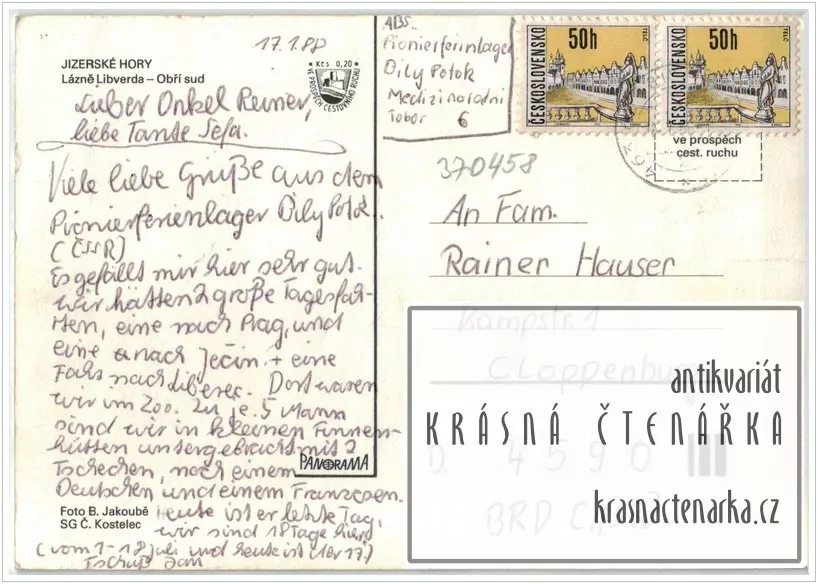 17.7.88
JIZERSKÉ HORY
Lázně Libverda – Obří sud
Kčs 0,20
VE PROSPĚCH CESTOVNÍHO RUCHU
Lieber Onkel Reiner,
liebe Tante Sefa.
Viele liebe Grüße aus dem
Pionierferienlager Bily Potok.
(ČSSR)
Es gefällt mir hier sehr gut.
wir hatten 2 große Tagesfah-
rten, eine nach Prag, und
eine nach Ječin + eine
Fahs nach Liberec. Dort waren
wir im Zoo. Zu je 5 Mann
sind wir in kleinen Finnen-
hütten untergebracht mit 2
Tschechen, noch einem
Deutschen und einem Franzosen.
Heute ist er letzte Tag,
wir sind 18 Tage hier
(vom 1-18 juli und heute ist der 17.)
Tschüß Jan
PANORAMA
Foto B. Jakoubě
SG Č. Kostelec
ABS.
Pionierferienlager
Bily Potok
Medizinarodni
Tabor 6
ČESKOSLOVENSKO
50h
TELČ
ČESKOSLOVENSKO
50h
TELČ
ve prospěch
cest. ruchu
370458
An Fam.
Rainer Hauser
Kampstr. 1
Cloppenburg
D 4590
BRD
antikvariát
KRÁSNÁ ČTENÁŘKA
krasnactenarka.cz